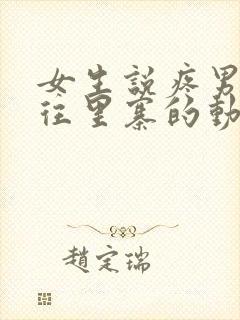 女生說疼男
往里寨的動
趙定瑞